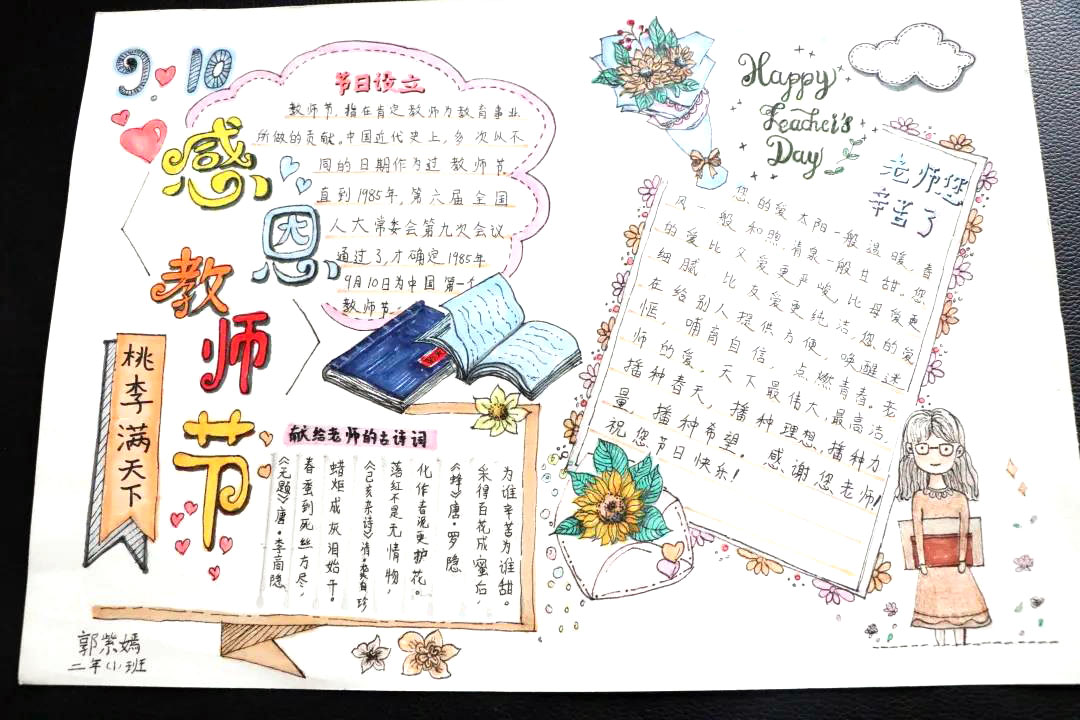 9.10
感恩
教师节
桃李满天下
节日设立
教师节,旨在肯定教师为教育事业
所做的贡献。中国近代史上,多次从不
同的日期作为过教师节。
直到1985年,第六届全国
人大常委会第九次会议
通过了,才确定1985年
9月10日为中国第一个
教师节。
献给老师的古诗词
《无题》唐·李商隐
春蚕到死丝方尽,
蜡炬成灰泪始干。
《己亥杂诗》清·龚自珍
落红不是无情物,
化作春泥更护花。
《蜂》唐·罗隐
采得百花成蜜后,
为谁辛苦为谁甜。
Happy
Teacher's
Day
老师您
辛苦了
您的爱,太阳一般温暖,春
风一般和煦,清泉一般甘甜。您
的爱比父爱更严峻,比母爱更
细腻,比友爱更纯洁,您的爱
在给别人提供方便,唤醒迷
惘,哺育自信,点燃青春。老
师的爱,天下最伟大,最高洁,
播种春天,播种理想,播种力
量,播种希望。感谢您老师!
祝您节日快乐!
郭紫嫣
二年(1)班